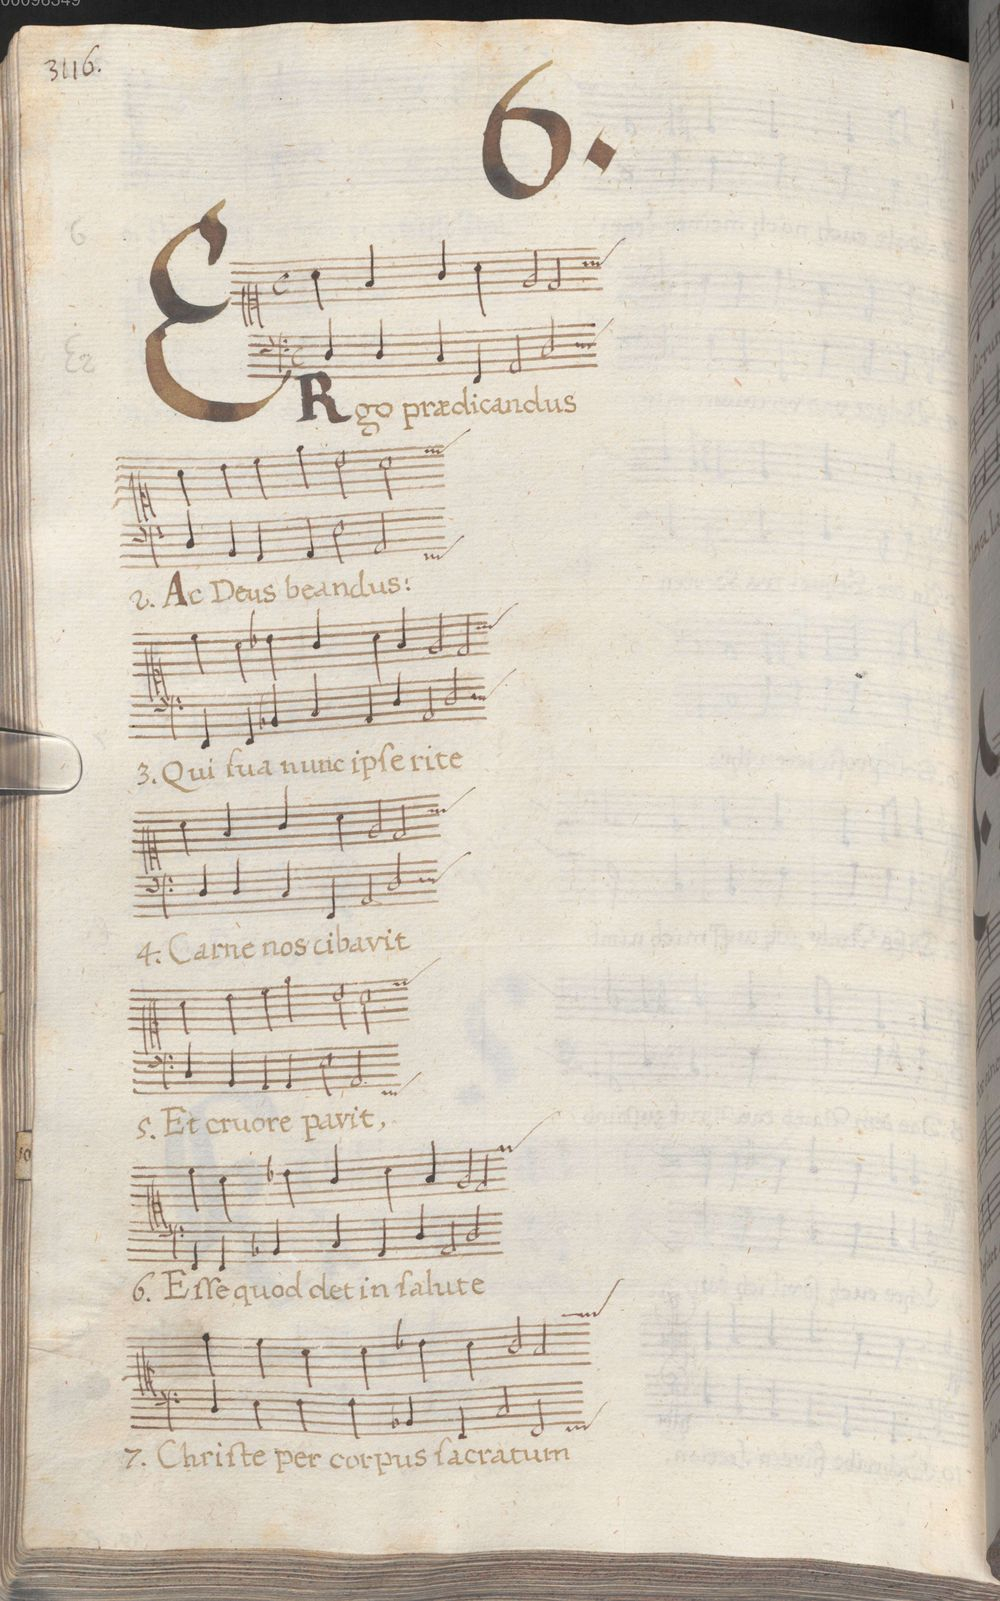 00096349
3116.
6.
ERgo prædicandus
2. Ac Deus beandus:
3. Qui sua nunc ipse rite
4. Carne nos cibavit
5. Et cruore pavit,
6. Esse quod det in salute
7. Christe per corpus sacratum